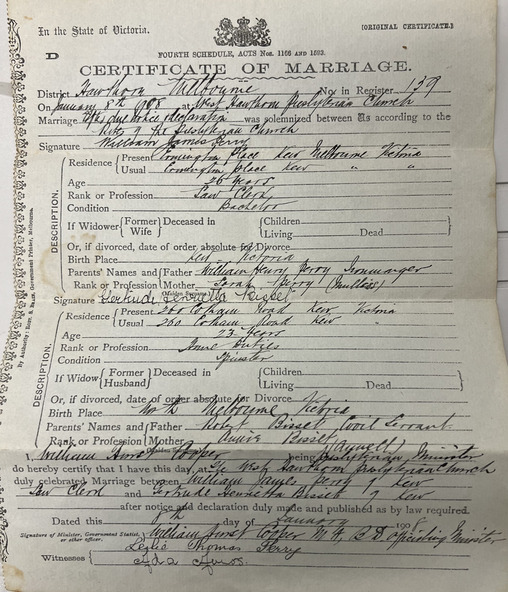 In the State of Victoria. [ORIGINAL CERTIFICATE.]
D FOURTH SCHEDULE, ACTS Nos. 1166 AND 1593.
CERTIFICATE OF MARRIAGE.
District Hawthorn Melbourne No. in Register 139
On January 8th 1908 at West Hawthorn Presbyterian Church
Marriage after due notice & declaration was solemnized between Us according to the
Rites of the Presbyterian Church
Signature William James Perry
Residence Present Place Kew Melbourne Victoria
Usual Place Kew " "
Age 26 Years
Rank or Profession Law Clerk
Condition Bachelor
If Widower Former Wife Deceased in Children Living Dead
Or, if divorced, date of order absolute for Divorce
Birth Place Kew Victoria
Parents' Names and Rank or Profession Father William Henry Perry Ironmonger
Mother (Maiden Surname) Sarah Perry
DESCRIPTION.
Signature Gertude Henrietta Bisset
Residence Present 260 Cotham Road Kew Victoria
Usual 260 Cotham Road Kew "
Age 23 Years
Rank or Profession Home Duties
Condition Spinster
If Widow Former Husband Deceased in Children Living Dead
Or, if divorced, date of order absolute for Divorce
Birth Place North Melbourne Victoria
Parents' Names and Rank or Profession Father Robert Bisset Civil Servant
Mother (Maiden Surname) Annie Bisset
DESCRIPTION.
I, William Cooper being Presbyterian Minister
do hereby certify that I have this day, at The West Hawthorn Presbyterian Church
duly celebrated Marriage between William James Perry of Kew
Law Clerk and Gertrude Henrietta Bisset of Kew
after notice and declaration duly made and published as by law required.
Dated this 8th day of January 1908
Signature of Minister, Government Statist, or other officer. William Cooper Officiating Minister
Witnesses Leslie Thomas Perry
Ada
By Authority: Government Printer, Melbourne.